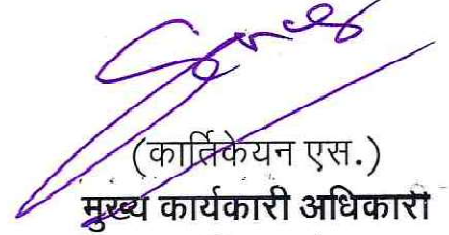 (कार्तिकेयन एस.)
मुख्य कार्यकारी अधिकारी